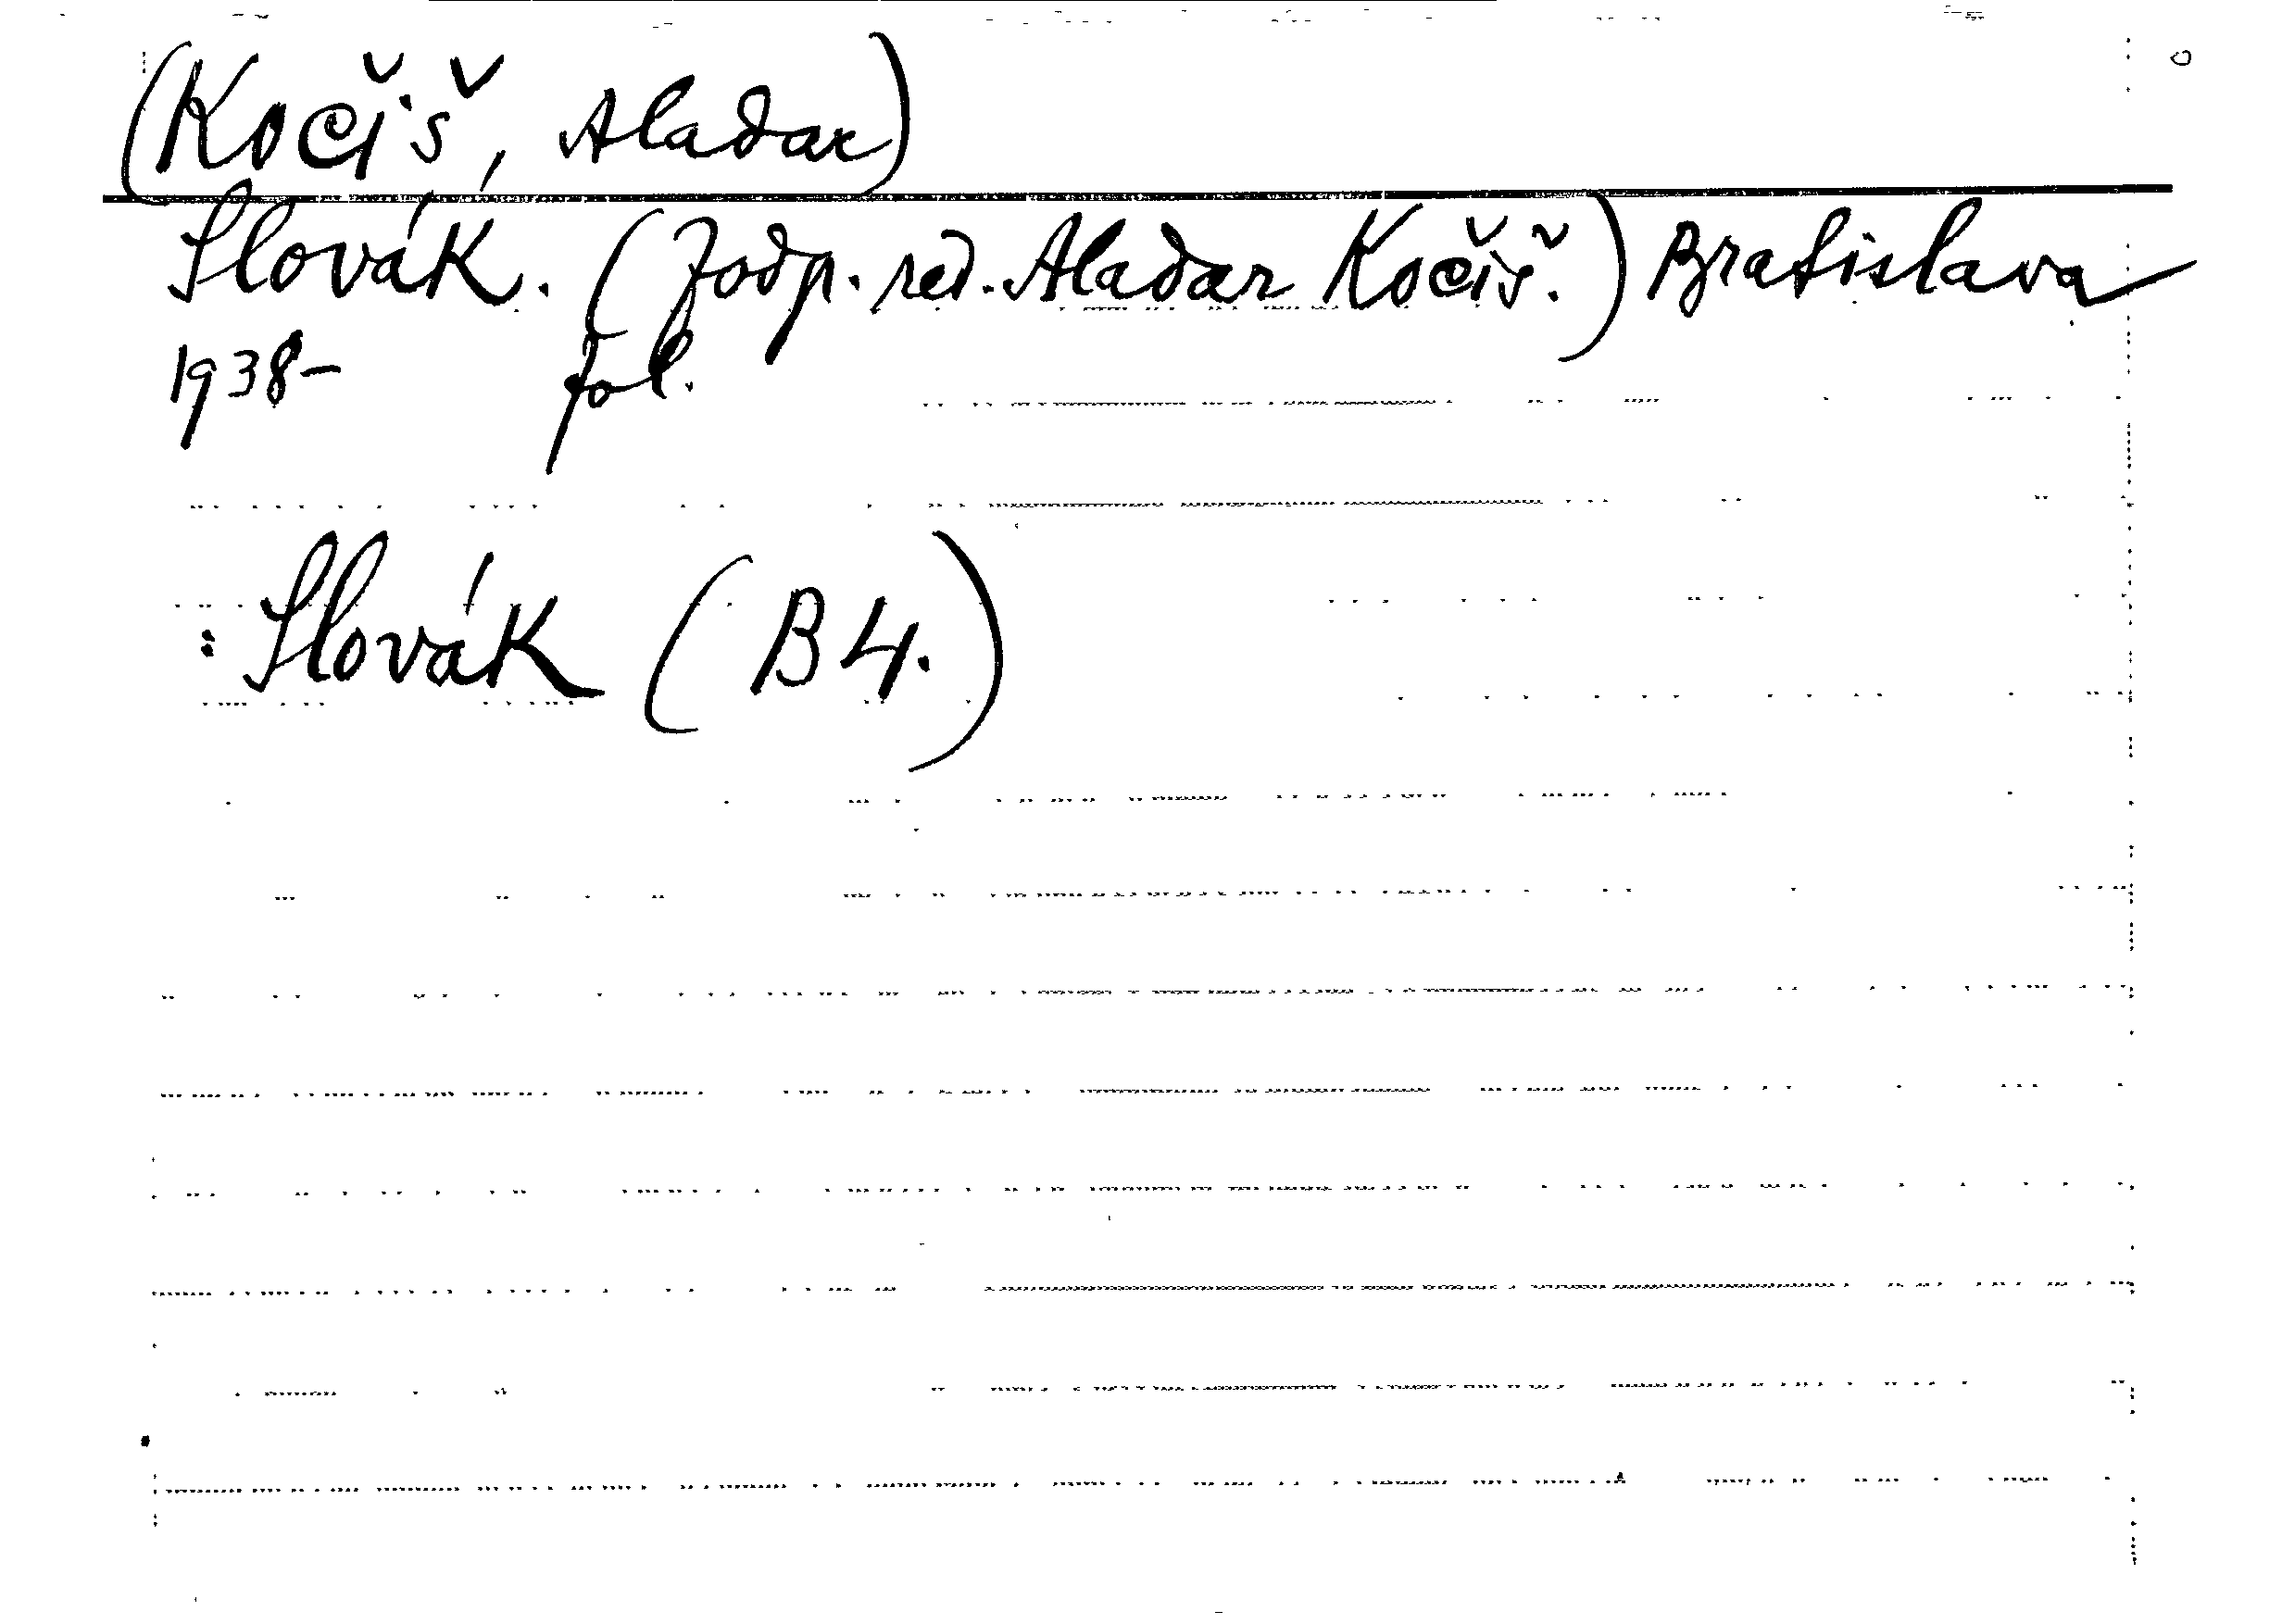 (Kočiš, Aladar)
Slovák. (Zodp. red. Aladar Kočiš.) Bratislava
1938- fol.
: Slovák (B 4.)